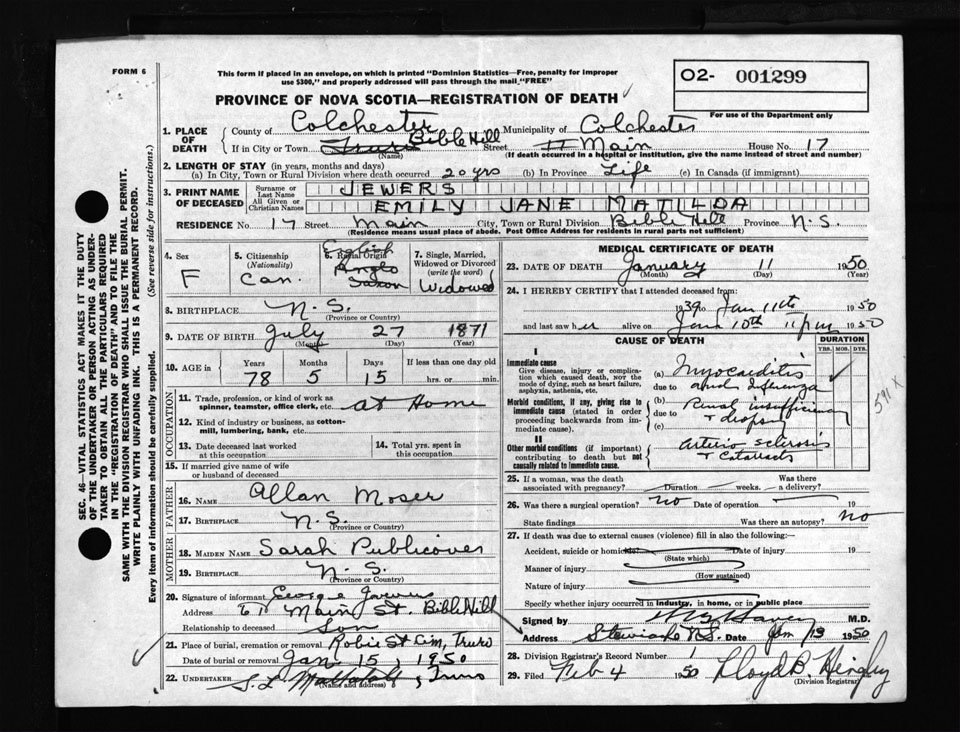 FORM 6
This form if placed in an envelope, on which is printed "Dominion Statistics—Free, penalty for improper
use $300," and properly addressed will pass through the mail "FREE"
O2- 001299
For use of the Department only
PROVINCE OF NOVA SCOTIA—REGISTRATION OF DEATH
1. PLACE OF DEATH
County of Colchester Municipality of Colchester
If in City or Town Truro Bible Hill Street Main House No. 17
(Name) (If death occurred in a hospital or institution, give the name instead of street and number)
2. LENGTH OF STAY (in years, months and days)
(a) In City, Town or Rural Division where death occurred 20 yrs (b) In Province Life (c) In Canada (if immigrant)
3. PRINT NAME OF DECEASED
Surname or Last Name JEWERS
All Given or Christian Names EMILY JANE MATILDA
RESIDENCE No. 17 Street Main City, Town or Rural Division Bible Hill Province N-S.
(Residence means usual place of abode. Post Office Address for residents in rural parts not sufficient)
4. Sex F
5. Citizenship (Nationality) Can.
6. Racial Origin English Anglo Saxon
7. Single, Married, Widowed or Divorced (write the word) Widowed
8. BIRTHPLACE N-S.
(Province or Country)
9. DATE OF BIRTH July 27 1871
(Month) (Day) (Year)
10. AGE in Years Months Days If less than one day old
78 5 15 hrs. or min.
OCCUPATION
11. Trade, profession, or kind of work as
spinner, teamster, office clerk, etc. at Home
12. Kind of industry or business, as cotton-
mill, lumbering, bank, etc.
13. Date deceased last worked
at this occupation
14. Total yrs. spent in
this occupation
15. If married give name of wife
or husband of deceased
FATHER
16. NAME Allan Moser
17. BIRTHPLACE N-S.
(Province or Country)
MOTHER
18. MAIDEN NAME Sarah Publicover
19. BIRTHPLACE N-S.
(Province or Country)
20. Signature of informant George
Address Main St. Bible Hill
Relationship to deceased Son
21. Place of burial, cremation or removal Robie St Cem, Truro
Date of burial or removal Jan 15, 1950
22. UNDERTAKER , Truro
(Name and address)
MEDICAL CERTIFICATE OF DEATH
23. DATE OF DEATH January 11 1950
(Month) (Day) (Year)
24. I HEREBY CERTIFY that I attended deceased from:
1939 to Jan 11th 1950
and last saw her alive on Jan 10th 11 pm 1950
CAUSE OF DEATH DURATION
YRS. MOS. DYS.
I
Immediate cause
Give disease, injury or complica-
tion which caused death, nor the
mode of dying, such as heart failure,
asphyxia, asthenia, etc.
(a) Myocarditis
due to
Morbid conditions, if any, giving rise to
immediate cause (stated in order
proceeding backwards from im-
mediate cause).
(b) Renal insufficiency
due to & dropsy
(c)
II
Other morbid conditions (if important)
contributing to death but not
causally related to immediate cause.
Arterio sclerosis
& Cataracts
591 X
25. If a woman, was the death
associated with pregnancy? Duration weeks. Was there
a delivery?
26. Was there a surgical operation? no Date of operation 19
State findings Was there an autopsy? no
27. If death was due to external causes (violence) fill in also the following:
Accident, suicide or homicide Date of injury 19
(State which)
Manner of injury
(How sustained)
Nature of injury
Specify whether injury occurred in industry, in home, or in public place
Signed by M.D.
Address Stewiacke N.S. Date Jan 13 1950
28. Division Registrar's Record Number 1
29. Filed Feb 4 1950 Lloyd B. Hingley
(Division Registrar)
SEC. 46—VITAL STATISTICS ACT MAKES IT THE DUTY
OF THE UNDERTAKER OR PERSON ACTING AS UNDER-
TAKER TO OBTAIN ALL THE PARTICULARS REQUIRED
IN THE "REGISTRATION OF DEATH" AND TO FILE THE
SAME WITH THE DIVISION REGISTRAR WHO SHALL ISSUE THE BURIAL PERMIT.
WRITE PLAINLY WITH UNFADING INK. THIS IS A PERMANENT RECORD.
Every item of information should be carefully supplied. (See reverse side for instructions.)